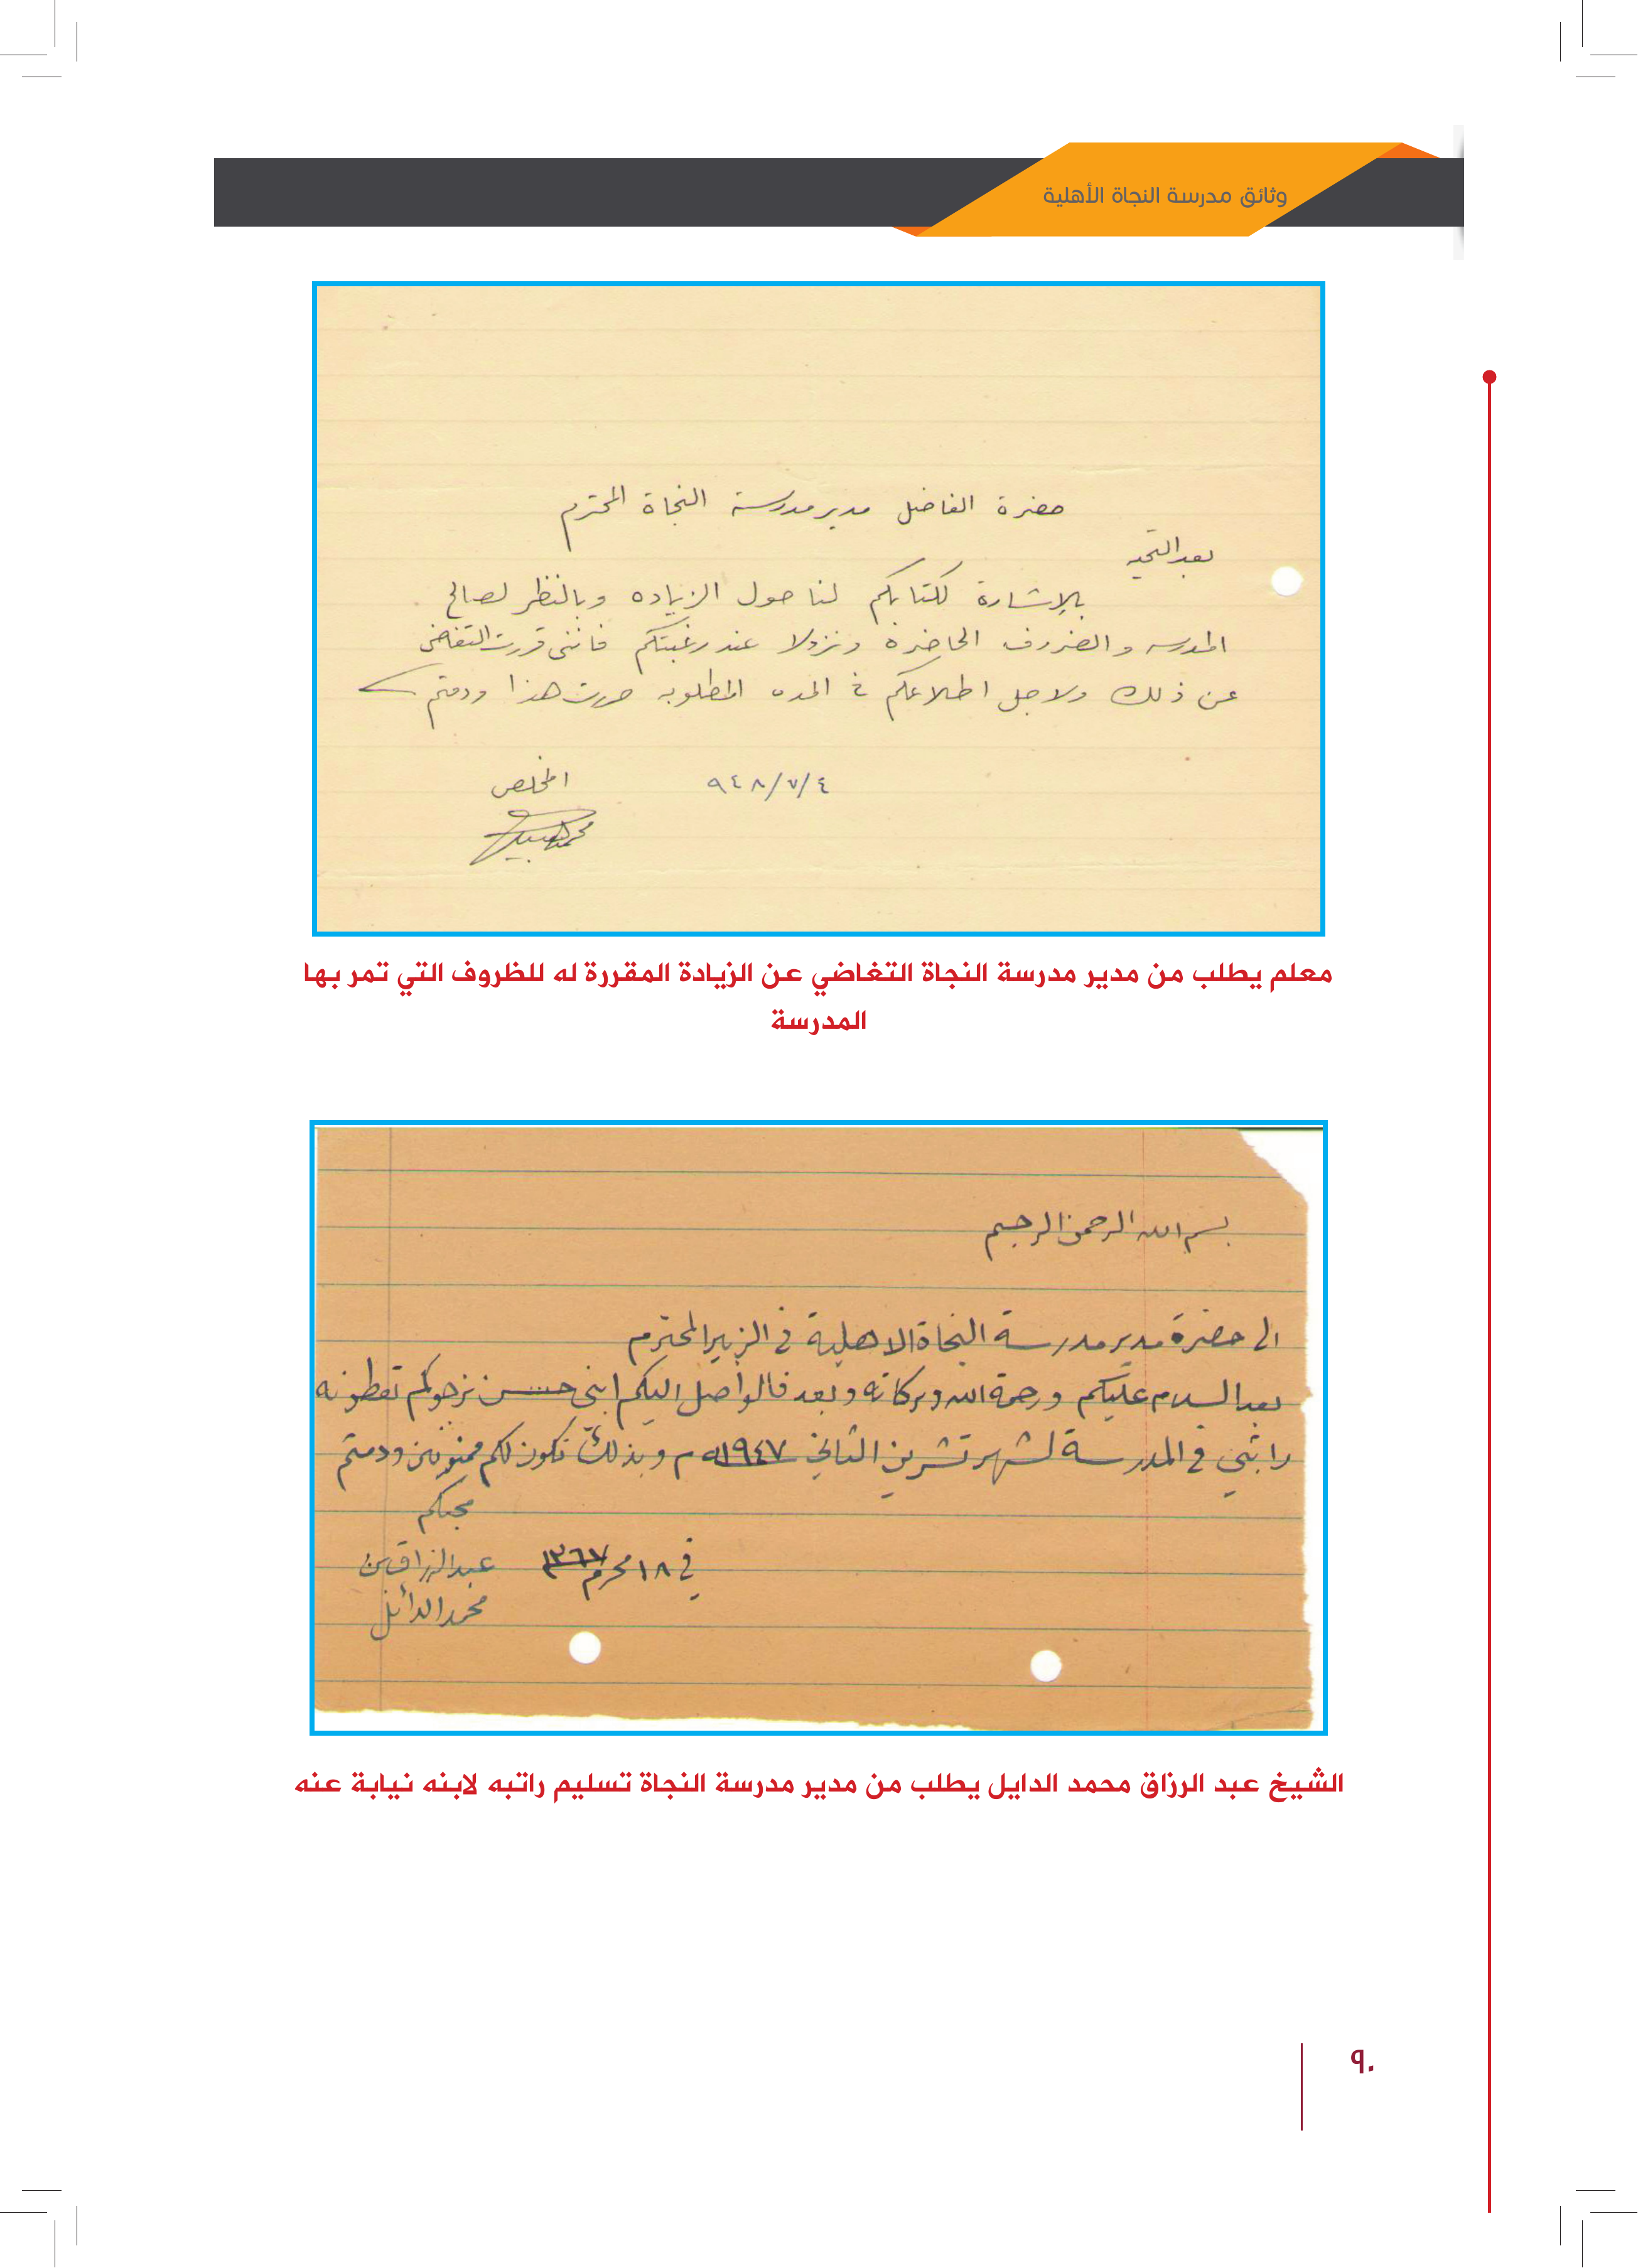 وثائق مدرسة النجاة الأهلية
حضرة الفاضل مدير مدرسة النجاة المحترم
بعد التحيه
بالإشارة لكتابكم لنا حول الزياده وبالنظر لصالح
المدرسه والضروف الحاضرة ونزولا عند رغبتكم فانني قررت التغاضي
عن ذلك ولاجل اطلاعكم في المده المطلوبه حررت هذا ودمتم
٩٤٨/٧/٤ المخلص
معلم يطلب من مدير مدرسة النجاة التغاضي عن الزيادة المقررة له للظروف التي تمر بها
المدرسة
بسم الله الرحمن الرحيم
الى حضرة مدير مدرسة النجاة الاهلية في الزبير المحترم
بعد السلام عليكم ورحمة الله وبركاته وبعد فالواصل اليكم ابني حسن نرجوكم تعطونه
راتبي في المدرسة لشهر تشرين الثاني ١٩٤٧ م وبذلك نكون لكم ممنونين ودمتم
محبكم
في ١٨ محرم ١٣٦٧ عبدالرزاق بن
محمد الدائل
الشيخ عبد الرزاق محمد الدايل يطلب من مدير مدرسة النجاة تسليم راتبه لابنه نيابة عنه
٩٠